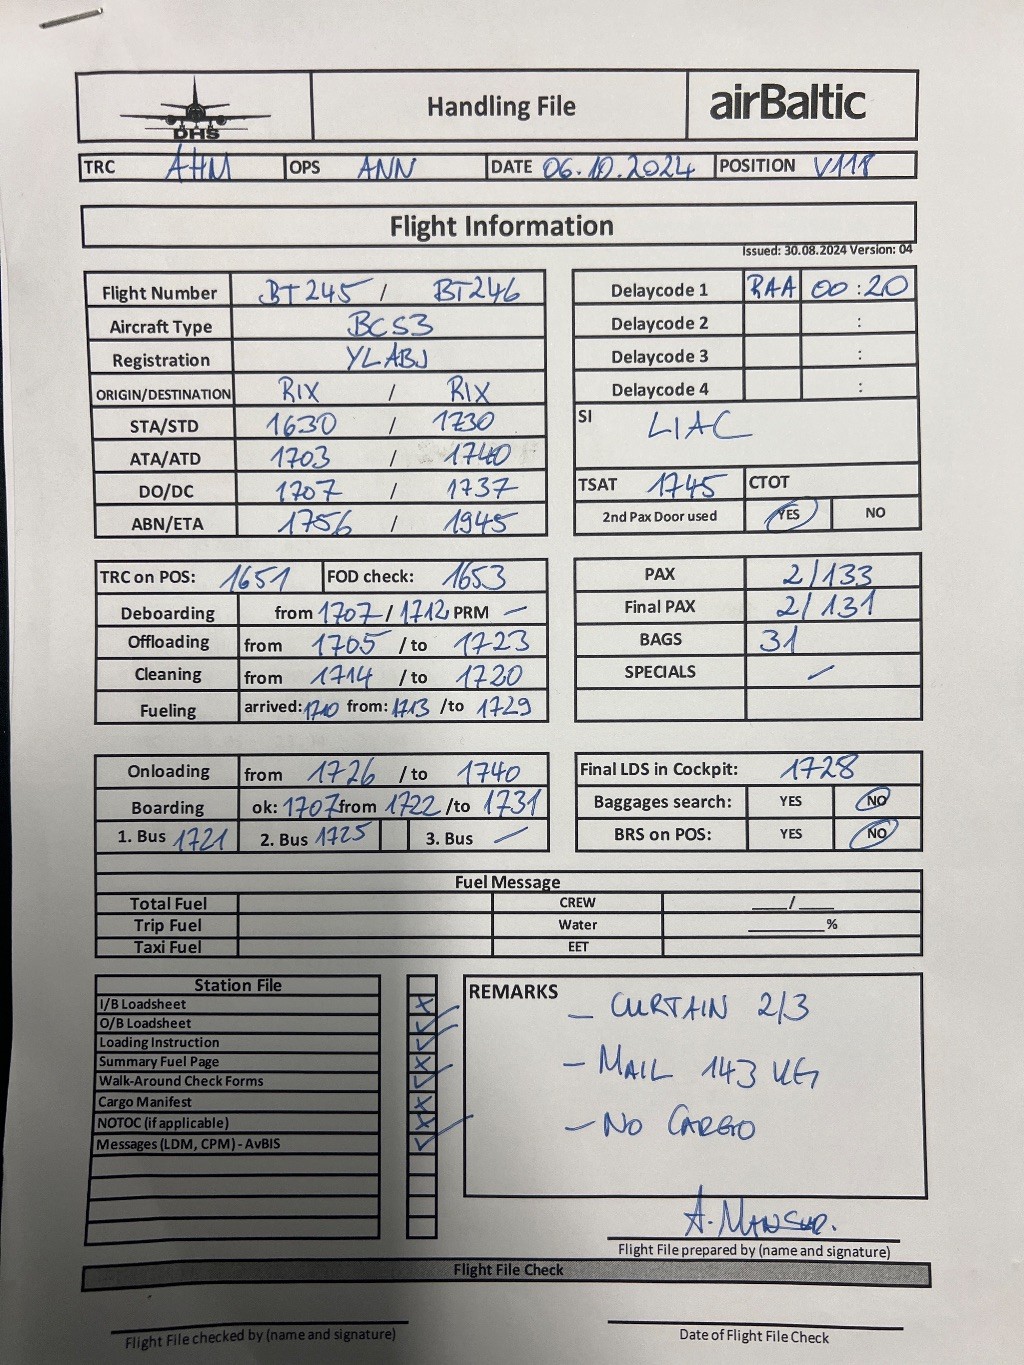 DHS
Handling File
airBaltic
TRC AHM OPS ANN DATE 06.10.2024 POSITION V118
Flight Information
Issued: 30.08.2024 Version: 04
Flight Number BT245 / BT246
Aircraft Type BCS3
Registration YLABJ
ORIGIN/DESTINATION RIX / RIX
STA/STD 1630 / 1730
ATA/ATD 1703 / 1740
DO/DC 1707 / 1737
ABN/ETA 1756 / 1945
Delaycode 1 RAA 00:20
Delaycode 2 :
Delaycode 3 :
Delaycode 4 :
SI LIAC
TSAT 1745 CTOT
2nd Pax Door used YES NO
TRC on POS: 1651 FOD check: 1653
Deboarding from 1707 / 1712 PRM —
Offloading from 1705 / to 1723
Cleaning from 1714 / to 1720
Fueling arrived: 1710 from: 1713 /to 1729
PAX 2/133
Final PAX 2/131
BAGS 31
SPECIALS —
Onloading from 1726 / to 1740
Boarding ok: 1707 from 1722 /to 1731
1. Bus 1721 2. Bus 1725 3. Bus —
Final LDS in Cockpit: 1728
Baggages search: YES NO
BRS on POS: YES NO
Fuel Message
Total Fuel CREW ____/____
Trip Fuel Water ________%
Taxi Fuel EET
Station File
I/B Loadsheet X
O/B Loadsheet ✓
Loading Instruction ✓
Summary Fuel Page X
Walk-Around Check Forms ✓
Cargo Manifest X
NOTOC (if applicable) X
Messages (LDM, CPM) - AvBIS ✓
REMARKS
— CURTAIN 2/3
— MAIL 143 KG
— NO CARGO
A. Mansur.
Flight File prepared by (name and signature)
Flight File Check
Flight File checked by (name and signature)
Date of Flight File Check